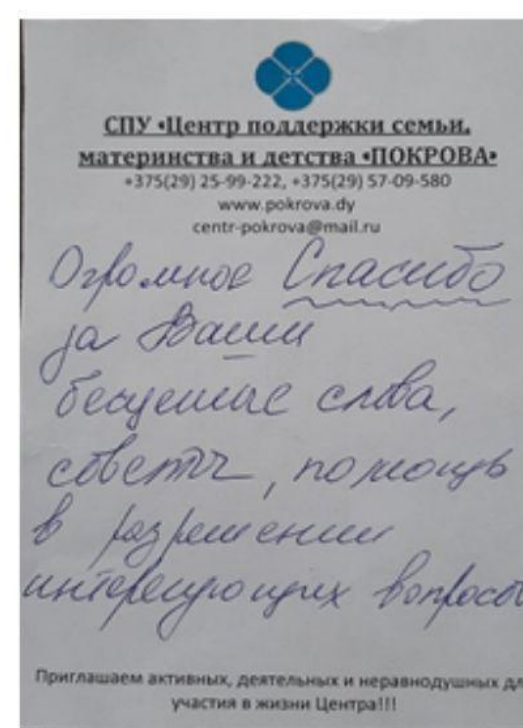 СПУ «Центр поддержки семьи,
материнства и детства «ПОКРОВА»
+375(29) 25-99-222, +375(29) 57-09-580
www.pokrova.dy
centr-pokrova@mail.ru
Огромное Спасибо
за Ваши
бесценные слова,
советы, помощь
в разрешении
интересующих вопросов
Приглашаем активных, деятельных и неравнодушных дл
участия в жизни Центра!!!